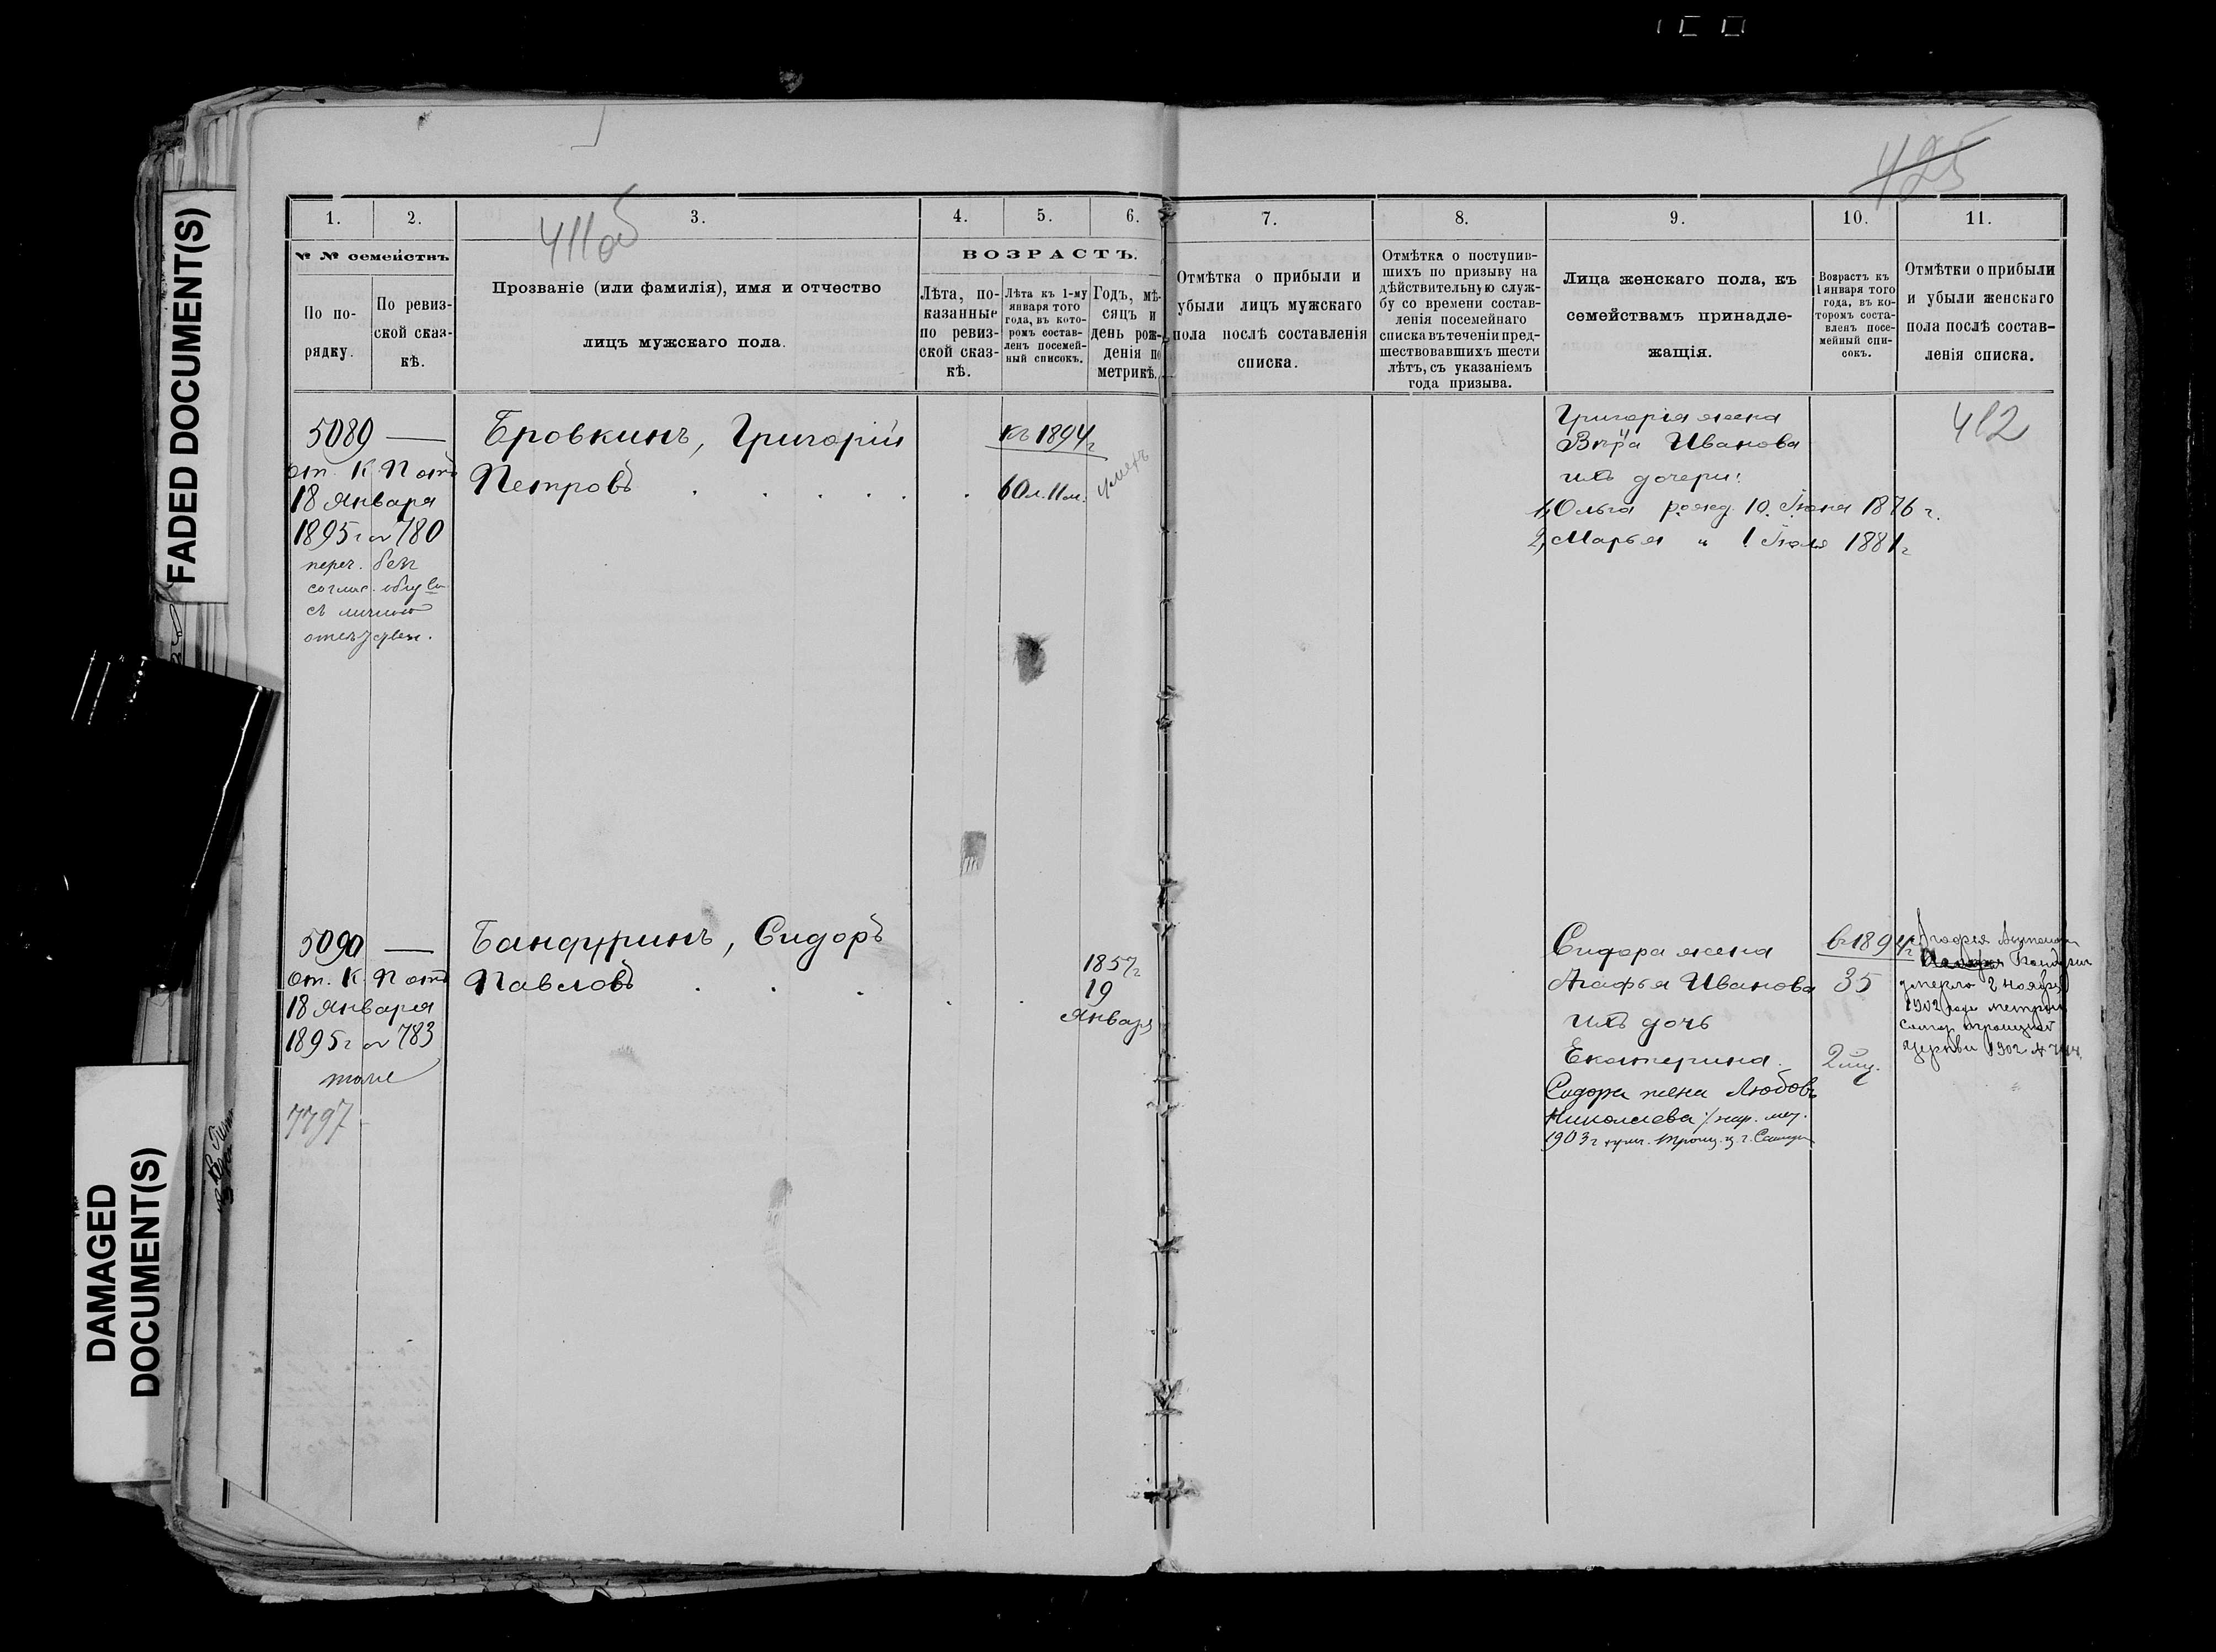 FADED DOCUMENT(S)
DAMAGED
DOCUMENT(S)
411об
425
1.
2.
3.
4.
5.
6.
7.
8.
9.
10.
11.
№ № семействъ
По по-
рядку.
По ревиз-
ской сказ-
кѣ.
Прозваніе (или фамилія), имя и отчество
лицъ мужскаго пола.
ВОЗРАСТЪ.
Лѣта, по-
казанные
по ревиз-
ской сказ-
кѣ.
Лѣта къ 1-му
января того
года, въ кото-
ромъ состав-
ленъ посемей-
ный списокъ.
Годъ, мѣ-
сяцъ и
день рож-
денія по
метрикѣ.
Отмѣтка о прибыли и
убыли лицъ мужскаго
пола послѣ составленія
списка.
Отмѣтка о поступив-
шихъ по призыву на
дѣйствительную служ-
бу со времени состав-
ленія посемейнаго
списка въ теченіи пред-
шествовавшихъ шести
лѣтъ, съ указаніемъ
года призыва.
Лица женскаго пола, къ
семействамъ принадле-
жащія.
Возрастъ къ
1 января того
года, въ ко-
торомъ соста-
вленъ посе-
мейный спи-
сокъ.
Отмѣтки о прибыли
и убыли женскаго
пола послѣ состав-
ленія списка.
5089 —
от. К. П отъ
18 Января
1895 г за 780
переч. без
соглас. общ
съ
Бровкинъ, Григорій
Петровъ
къ 1894 г
60 л. 11 м.
умеръ
Григорія жена
Вѣра Иванова
ихъ дочери:
1, Ольга рожд. 10 Іюня 1876 г.
2, Марья " 1 Іюля 1881 г
412
5090 —
от. К. П отъ
18 Января
1895 г за 783
тоже
7797
Бандуринъ, Сидоръ
Павловъ
1857 г
19
Января
Сидора жена
Агафья Иванова
ихъ дочь
Екатерина
Сидора жена Любовь
Николаева
1903 г Троиц. ц. г.
в 1894 г
35
2
Агафья
умерла 2 ноября
1902 года
Троицкой
церкви 1902 №